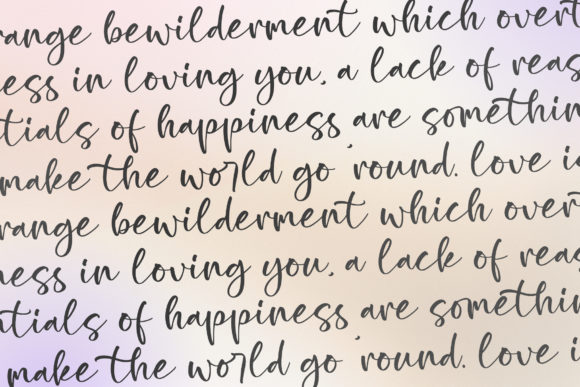 range bewilderment which overt
ess in loving you, a lack of reas
tials of happiness are somethin
make the world go 'round. love i
range bewilderment which overt
ness in loving you, a lack of reas
ntials of happiness are somethin
make the world go 'round. love i